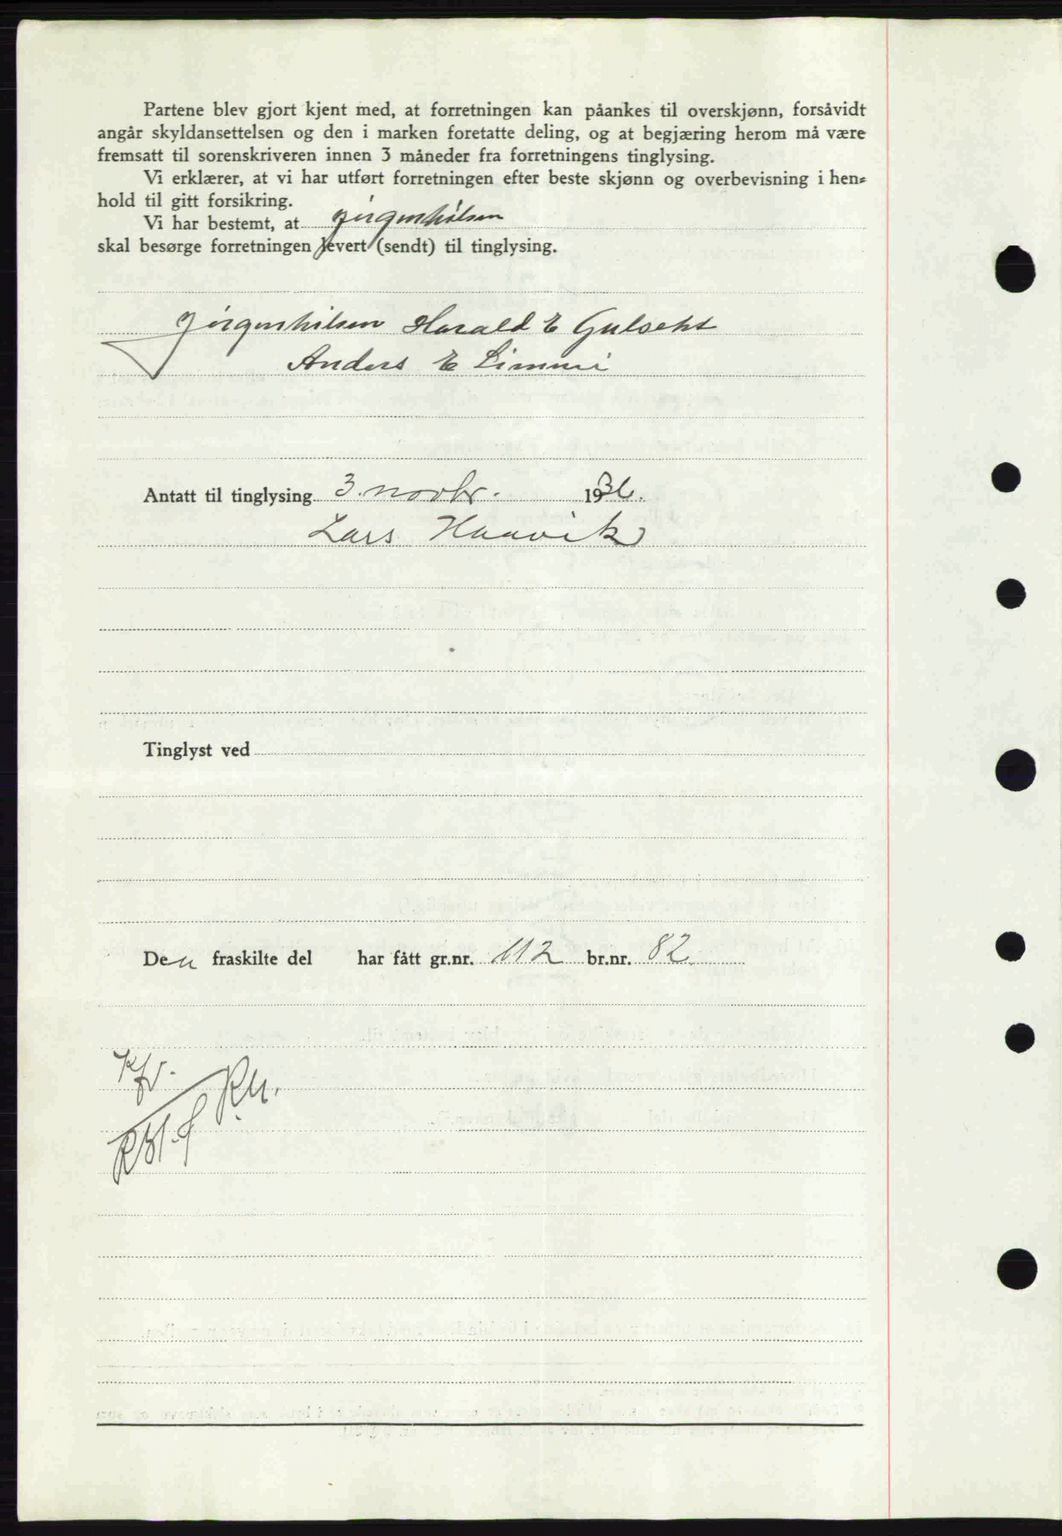 Partene blev gjort kjent med, at forretningen kan påankes til overskjønn, forsåvidt
angår skyldansettelsen og den i marken foretatte deling, og at begjæring herom må være
fremsatt til sorenskriveren innen 3 måneder fra forretningens tinglysing.
Vi erklærer, at vi har utført forretningen efter beste skjønn og overbevisning i hen-
hold til gitt forsikring.
Vi har bestemt, at Jörgen Nilsen
skal besørge forretningen levert (sendt) til tinglysing.
Jörgen Nilsen Harald E Gulseht
Anders E Limmi
Antatt til tinglysing 3. novbr. 1936.
Lars Haavik
Tinglyst ved
Den fraskilte del har fått gr.nr. 112 br.nr. 82